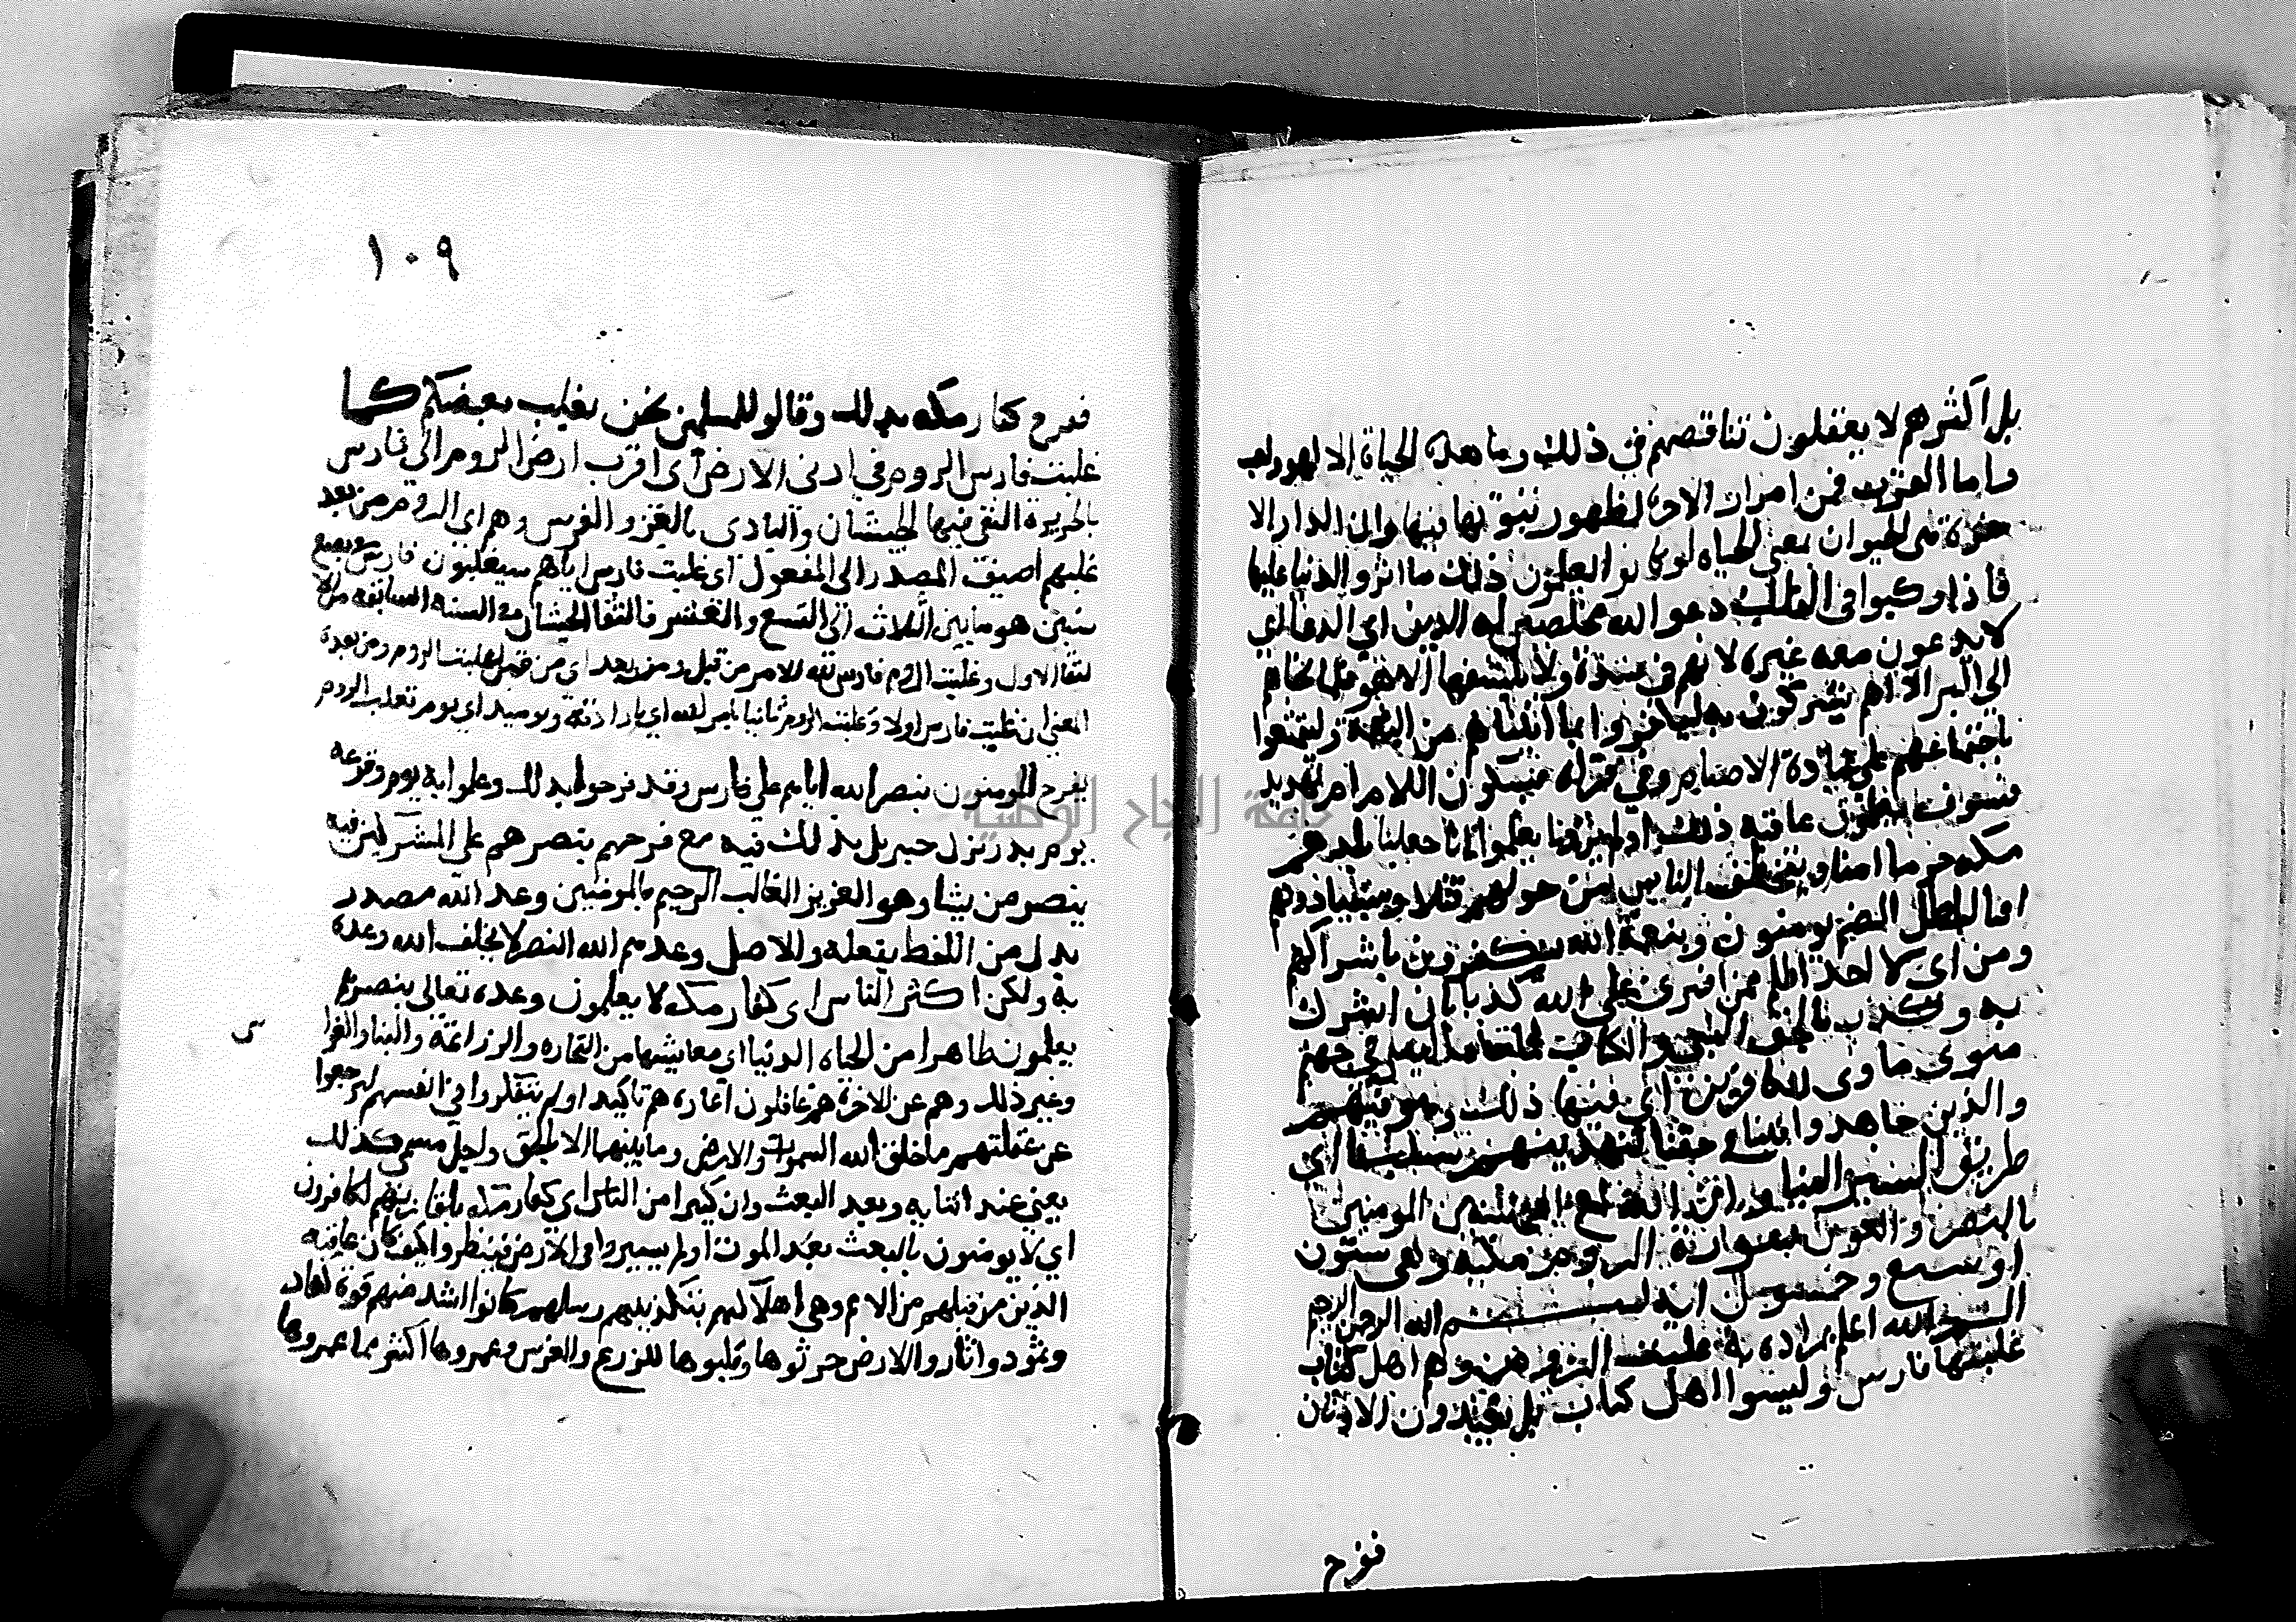 بل اكثرهم لا يعقلون تناقصهم في ذلك وما هذه الحياة الا لهو ولعب
واما القرب فمن امور الاخرة لظهور ثمرتها فيها وان الدار الا
خرة لهي الحيوان بمعنى الحياه لو كانوا يعلمون ذلك ما اثروا الدنيا عليها
فاذا ركبوا في الفلك دعوا الله مخلصين له الدين اي الدعا اي
لا يدعون معه غيره لانهم في شدة ولا يكشفها الا هو فلما نجاهم
الى البر اذا هم يشركون به ليكفروا بما اتيناهم من النعمة وليتمتعوا
باجتماعهم على عبادة الاصنام وفي قراة بسكون اللام امر تهديد
فسوف يعلمون عاقبة ذلك اولم يروا يعلموا انا جعلنا بلدهم
مكه حرما امنا ويتخطف الناس من حولهم قتلا وسبيا دونهم
افبالباطل الصنم يومنون وبنعمة الله يكفرون باشراكهم
ومن اي لا احد اظلم ممن افترى على الله كذبا بان اشرك
به وكذب بالحق النبي او الكتاب لما جاه اليس في جهنم
مثوى ماوى للكافرين اي فيها ذلك وهو منهم
والذين جاهدوا فينا في حقنا لنهدينهم سبلنا اي
طريق السير الينا وان الله لمع المحسنين المومنين
بالنصر والعون سورة الروم مكيه وهي ستون
او تسع وخمسون اية بسم الله الرحمن الرحيم
الم الله اعلم بمراده به غلبت الروم وهم اهل كتاب
غلبتها فارس وليسوا اهل كتاب بل يعبدون الاوثان
ففرح
١٠٩
ففرح كفار مكه بذلك وقالوا للمسلمين نحن نغلب بعضكم كما
غلبت فارس الروم في ادنى الارض اى اقرب ارض الروم الى فارس
بالجزيرة التقى فيها الجيشان والبادى بالغزو الفرس وهم اى الروم من بعد
غلبهم اضيف المصدر الى المفعول اى غلبت فارس اياهم سيغلبون فارس في بضع
سنين هو ما بين الثلاث الى التسع والعشر فالتقا الجيشان في السنه السابعه من الا
لتقا الاول وغلبت الروم فارس لله الامر من قبل ومن بعد اى من قبل غلبت الروم ومن بعده
المعنى ان غلبت فارس اولا وغلبة الروم ثانيا بامر الله اي بارادته ويوميذ اي يوم تغلب الروم
يفرح المومنون بنصر الله اياهم على فارس وقد فرحوا بذلك وعلموا به يوم وقوعه
يوم بدر بنزول جبريل بذلك فيه مع فرحهم بنصرهم على المشركين فيه
ينصر من يشا وهو العزيز الغالب الرحيم بالمومنين وعد الله مصدر
بدل من اللفظ بفعله والاصل وعدهم الله النصر لا يخلف الله وعده
به ولكن اكثر الناس اى كفار مكه لا يعلمون وعده تعالى بنصرهم
يعلمون ظاهرا من الحياه الدنيا اي معايشها من التجاره والزراعة والبنا والغرا
س
وغير ذلك وهم عن الاخرة هم غافلون اعادة هم تاكيد اولم يتفكروا في انفسهم ليرجعوا
عن غفلتهم ما خلق الله السموات والارض وما بينهما الا بالحق واجل مسمى كذلك
يفنى عند انتهايه وبعد البعث وان كثيرا من الناس اى كفار مكه بلقا ربهم لكافرون
اي لا يومنون بالبعث بعد الموت اولم يسيروا في الارض فينظروا كيف كان عاقبه
الذين من قبلهم من الامم وهي اهلاكهم بتكذيبهم رسلهم كانوا اشد منهم قوة كعاد
وثمود واثاروا الارض حرثوها وقلبوها للزرع والغرس وعمروها اكثر مما عمروها